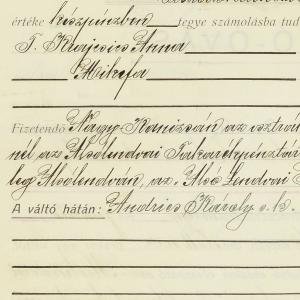 értéke készpénzben fegye számolásba tud
T. Krajcsics Anna
Mikefa
Fizetendő Nagy-Kanizsán az osztrá
nél az Alsólendvai Takarékpénztár
leg Alsólendván, az Alsó Lendvai
A váltó hátán: Andrics Károly s. k.